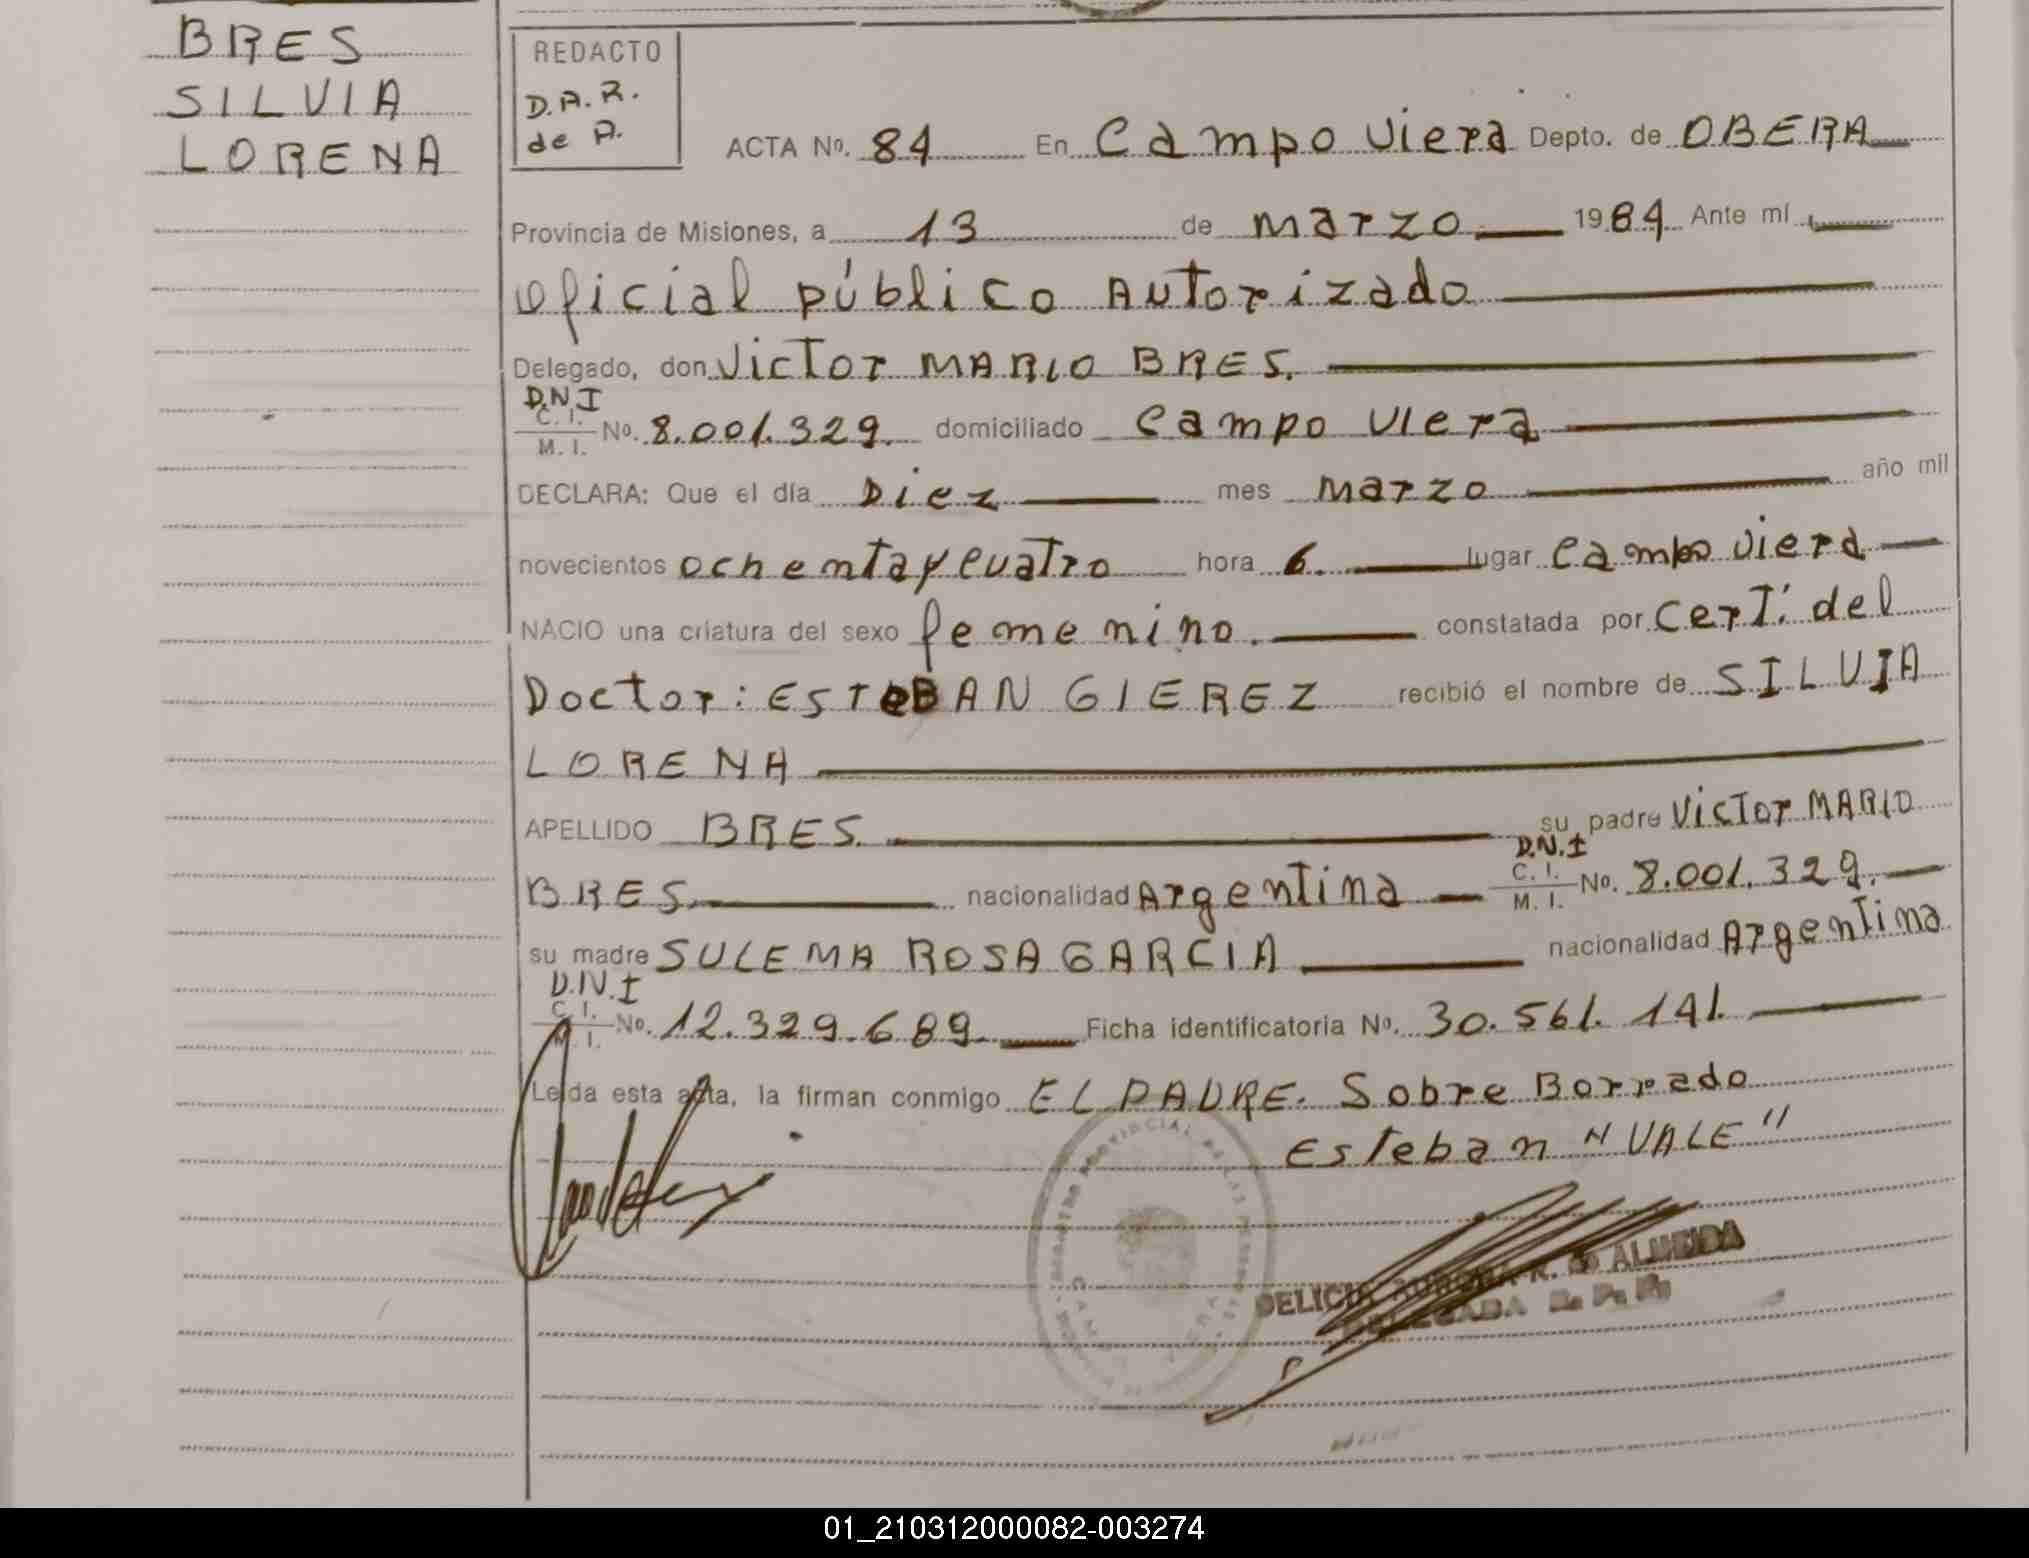 BRES
SILVIA
LORENA
REDACTO
D.A.R.
de A.
ACTA No. 84 En Campo Viera Depto. de OBERA
Provincia de Misiones, a 13 de marzo 1984 Ante mí
Oficial público Autorizado
Delegado, don Victor MARIO BRES.
D.N.I
C. I.
M. I. No. 8.001.329. domiciliado Campo Viera
DECLARA: Que el día Diez mes marzo año mil
novecientos ochentaycuatro hora 6. lugar Campo Viera
NACIO una criatura del sexo femenino. constatada por Cert. del
Doctor: ESTEBAN GIEREZ recibió el nombre de SILVIA
LORENA
APELLIDO BRES. su padre Victor MARIO
BRES. nacionalidad Argentina D.N.I C. I. M. I. No. 8.001.329.
su madre SULEMA ROSA GARCIA nacionalidad Argentina
D.N.I
C. I.
M. I. No. 12.329.689. Ficha identificatoria No. 30.561.141.
Leída esta acta, la firman conmigo EL PADRE. Sobre Borrado
Esteban "VALE"
DELICIA AURORA R. ALMEIDA
DELEGADA R. P. P.
01_210312000082-003274